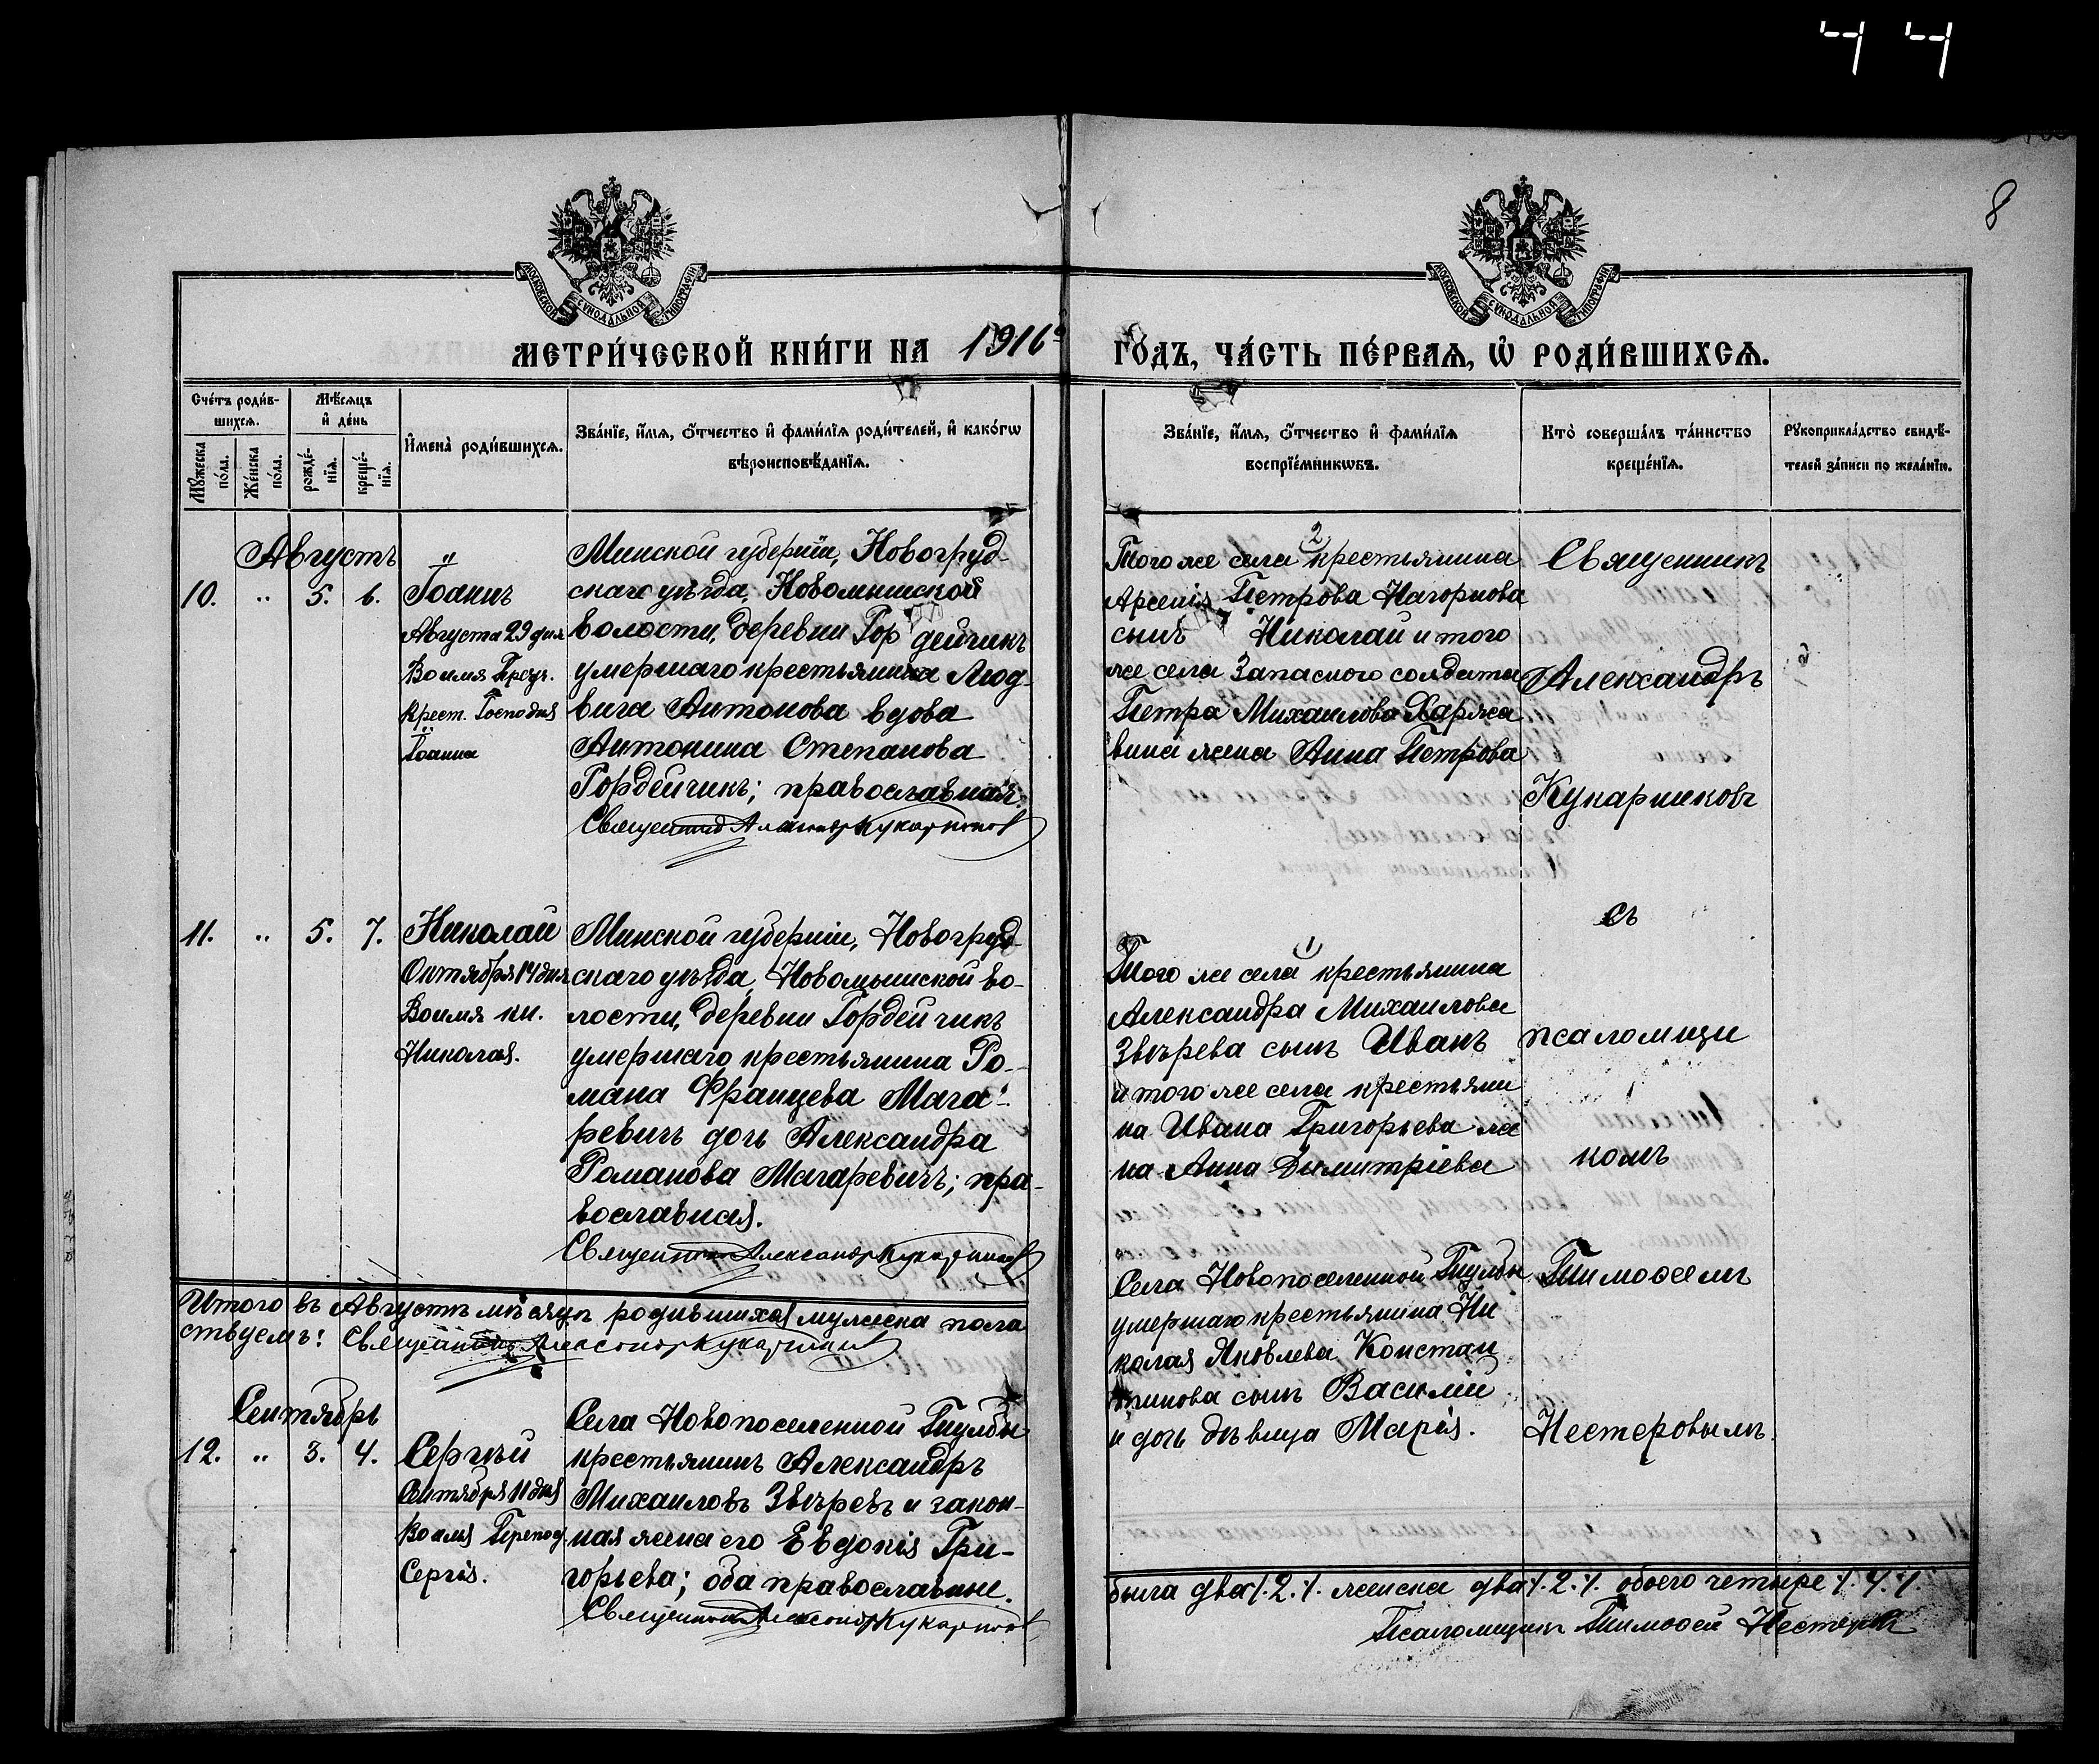 44
8
МОСКОВСКОЙ СѴНОДАЛЬНОЙ ТИПОГРАФІИ
МОСКОВСКОЙ СѴНОДАЛЬНОЙ ТИПОГРАФІИ
МЕТРИ́ЧЕСКОЙ КНИ́ГИ НА 1916 й
ГО́ДЪ, ЧА́СТЬ ПЕ́РВАѦ, Ѽ РОДИ́ВШИХСѦ.
Сче́тъ роди́в-
шихсѧ.
Мꙋжеска по́ла.
Же́нска по́ла.
Мѣ́сѧцъ
и҆ де́нь
рожде́-
нїѧ.
креще́-
нїѧ.
И҆мена̀ роди́вшихсѧ.
Зва́нїе, и҆́мѧ, ѻ҆́тчество и҆ фами́лїѧ роди́телей, и҆ како́гѡ
вѣроисповѣ́данїѧ.
Зва́нїе, и҆́мѧ, ѻ҆́тчество и҆ фами́лїѧ
воспрїе́мникѡвъ.
Кто̀ соверша́лъ та́инство
креще́нїѧ.
Рꙋкоприкла́дство свидѣ́-
телей за́писи по жела́нїю.
Августъ
10. " 5. 6.
"
Іоаннъ
Августа 29 дня
Во имя Предт.
Крест. Господня
Іоанна
Минской губерніи, Новогруд-
скаго уѣзда, Новомышской
волости, деревни Гордейчикъ
умершаго крестьянина Люд-
вига Антонова вдова
Антонина Степанова
Гордейчикъ; православная.
Священникъ Александръ Кукарниковъ
2
Того же села крестьянина
Арсенія Петрова Нагорнова
сынъ Николай и того
же села Запасного солдата
Петра Михаилова Харжа
вина жена Анна Петрова
Священникъ
Александръ
Кукарниковъ
съ
псаломщи
комъ
Тимоѳеемъ
Нестеровымъ.
11. " 5. 7.
Николай
Октября 14 дня
Во имя кн.
Николая.
Минской губерніи, Новогруд-
скаго уѣзда, Новомышской во-
лости, деревни Гордейчикъ
умершаго крестьянина Ро-
мана Францева Мага-
ревичъ дочь Александра
Романова Магаревичъ; пра-
вославная.
Священникъ Александръ Кукарниковъ
1
Того же села крестьянина
Александра Михаилова
Звѣрева сынъ Иванъ
и того же села крестьяни
на Ивана Григорьева же
на Анна Димитріева
Итого въ Августѣ мѣсяцѣ родившихся мужеска пола
ствуемъ: Священникъ Александръ Кукарниковъ
Сентябрь
12. " 3. 4.
Сергѣй
Сентября 11 дня
Во имя Препод.
Сергія.
Села Новопоселенной Тиулбы
крестьянинъ Александръ
Михаиловъ Звѣревъ и закон-
ная жена его Евдокія Гри-
горьева; оба православные.
Священникъ Александръ Кукарниковъ
Села Новопоселенной Тиулбы
умершаго крестьянина Ни
колая Яковлева Констан
тинова сынъ Василій
и дочь дѣвица Марія.
была два ./.2./. женска два ./.2./. обоего четыре ./.4./.
Псаломщикъ Тимоѳей Нестеровъ